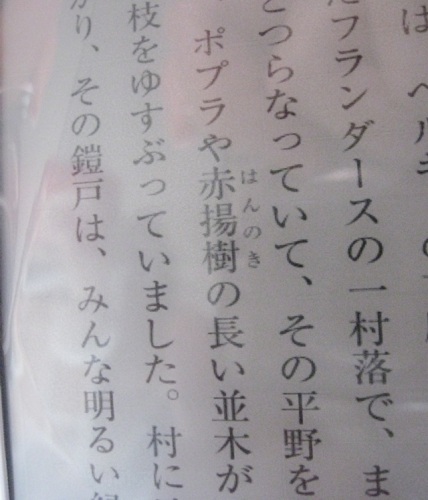 は、ベルギ
たフランダースの一村落で、ま
とつらなっていて、その平野を
ポプラや赤揚樹の長い並木が
はんのき
枝をゆすぶっていました。村に
り、その鎧戸は、みんな明るい